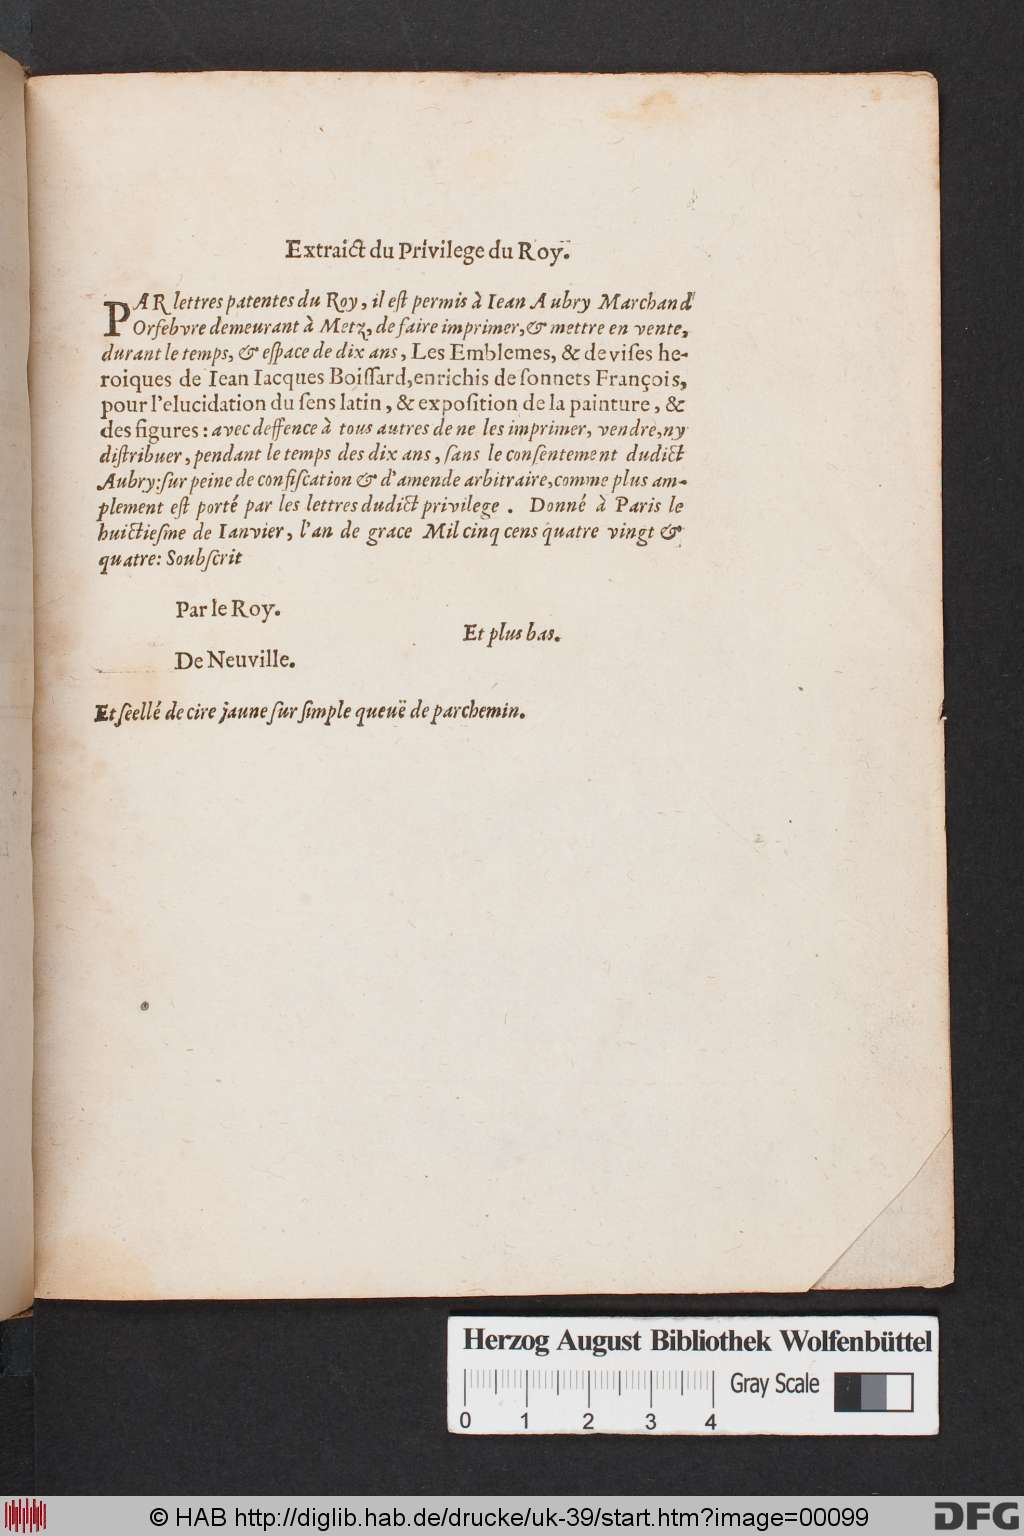 Extraict du Privilege du Roy.
PAR lettres patentes du Roy, il eſt permis à Iean Aubry Marchand
Orfebvre demeurant à Metz, de faire imprimer, & mettre en vente,
durant le temps, & eſpace de dix ans, Les Emblemes, & deviſes he-
roiques de Iean Iacques Boiſſard, enrichis de ſonnets François,
pour l'elucidation du ſens latin, & expoſition de la painture, &
des figures: avec deffence à tous autres de ne les imprimer, vendre, ny
diſtribuer, pendant le temps des dix ans, ſans le conſentement dudict
Aubry: ſur peine de confiſcation & d'amende arbitraire, comme plus am-
plement eſt porté par les lettres dudict privilege. Donné à Paris le
huictieſme de Ianvier, l'an de grace Mil cinq cens quatre vingt &
quatre: Soubſcrit
Par le Roy.
Et plus bas.
De Neuville.
Et ſeellé de cire jaune ſur ſimple queuë de parchemin.
Herzog August Bibliothek Wolfenbüttel
Gray Scale
0 1 2 3 4
© HAB http://diglib.hab.de/drucke/uk-39/start.htm?image=00099
DFG